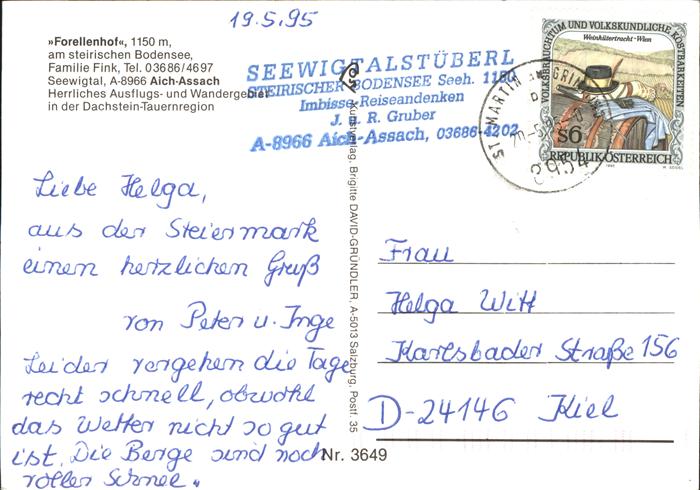 19.5.95
»Forellenhof«, 1150 m,
am steirischen Bodensee,
Familie Fink, Tel. 03686/4697
Seewigtal, A-8966 Aich-Assach
Herrliches Ausflugs- und Wandergebiet
in der Dachstein-Tauernregion
SEEWIGTALSTÜBERL
STEIRISCHER BODENSEE Seeh. 1150
Imbisse-Reiseandenken
J. u. R. Gruber
A-8966 Aich-Assach, 03686-4202
VOLKSBRAUCHTUM UND VOLKSKUNDLICHE KOSTBARKEITEN
Weinhütertracht - Wien
S6
REPUBLIK ÖSTERREICH
ST. MARTIN AM GRIMMING
8954
Liebe Helga,
aus der Steiermark
einen herzlichen Gruß
von Peter u. Inge
Leider vergehen die Tage
recht schnell, obwohl
das Wetter nicht so gut
ist. Die Berge sind noch
voller Schnee.
Kunstverlag Brigitte DAVID-GRÜNDLER, A-5013 Salzburg, Postf. 35
Frau
Helga Witt
Karlsbader Straße 156
D-24146 Kiel
Nr. 3649